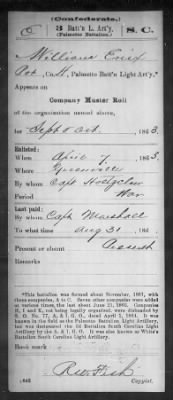 (Confederate.)
C 3 Batt'n L. Art'y. S. C.
(Palmetto Battalion.)
William
Pvt, Co. H, Palmetto Batt'n Light Art'y.*
Appears on
Company Muster Roll
of the organization named above,
for Sept & Oct., 1863.
Enlisted:
When April 7, 1863.
Where Greenville
By whom Capt
Period War
Last paid:
By whom Capt Marshall
To what time Aug 31, 186 .
Present or absent Present
Remarks
*This battalion was formed about November, 1861, with
three companies, A to C. Seven other companies were added
at various times, the last about June 21, 1862. Companies
H, I and K, not being legally organized, were disbanded by
S. O. No. 77, A. & I. G. O., dated April 2, 1864. It was
known in the field as the Palmetto Battalion Light Artillery,
but was designated the 3d Battalion South Carolina Light
Artillery by the A. & I. G. O. It was also known as White's
Battalion South Carolina Light Artillery.
Book mark
(642) Copyist.